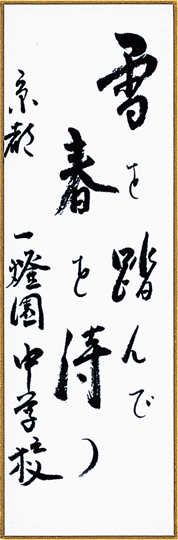 雪を踏んで
春を待つ
京都
一燈園中学校